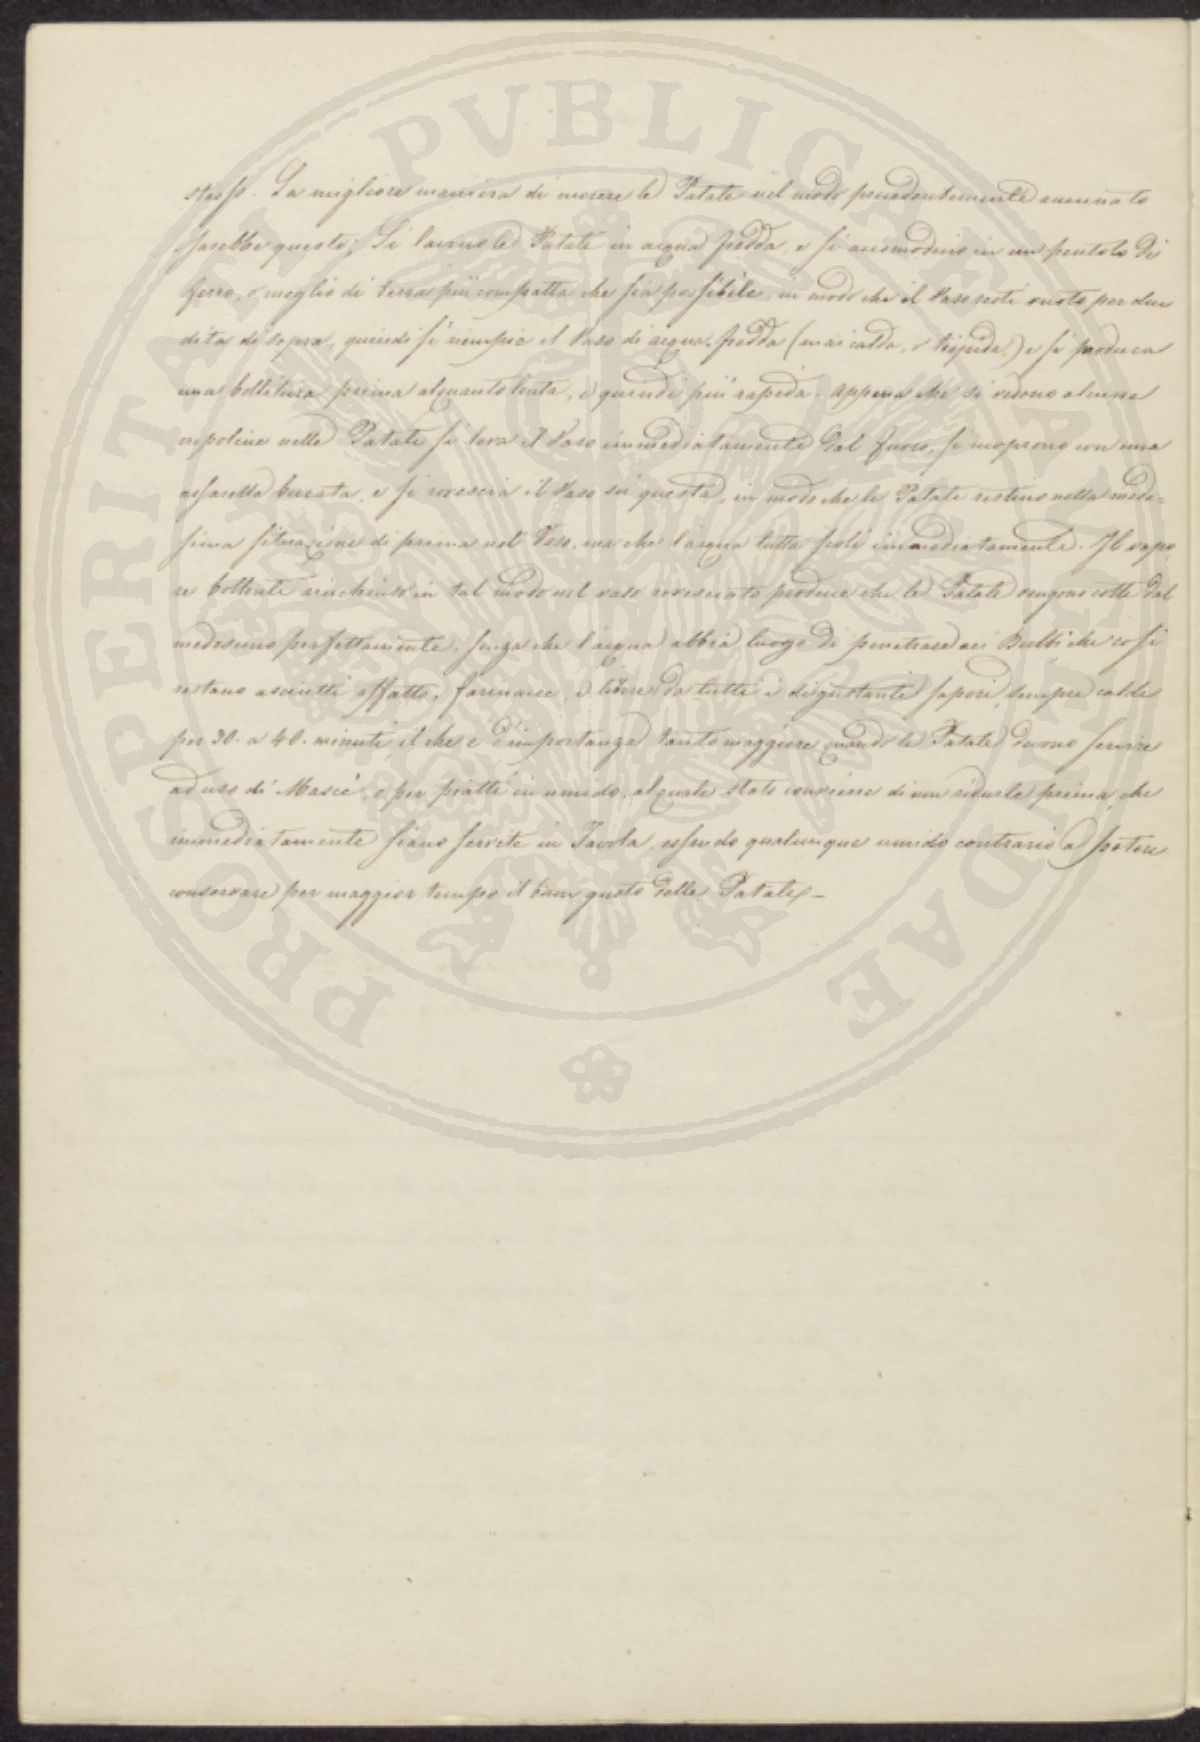 PROSPERITATI PVBLICAE AVGENDAE
stesso. La migliore maniera di cuocere le Patate nel modo precedentemente accennato
sarebbe questo; Si lavino le Patate in acqua fredda, e si accomodino in un pentola di
ferro, o meglio di terra più compatta che sia possibile, in modo che il Vaso resti vuoto per due
dita di sopra, quindi si riempie il Vaso di acqua fredda (mai calda, o tiepida) e si produca
una bollitura prima alquanto lenta, e quindi più rapida. Appena che si vedono alcune
crepoline nelle Patate si leva il Vaso immediatamente dal fuoco, si cuoprono con una
assicella bucata, e si rovescia il Vaso su questa, in modo che le Patate restino nella mede=
sima situazione di prima nel Vaso, ma che l'acqua tutta scoli immediatamente. Il vapo
re bollente rinchiuso in tal modo nel vaso rovesciato produce che le Patate vengono cotte dal
medesimo perfettamente, senza che l'acqua abbia luogo di penetrare nei Bulbi che così
restano asciutti affatto, farinacee, e libere da tutti i disgustanti sapori, sempre calde
per 30. a 40. minuti, il che è d'importanza tanto maggiore quando le Patate devono servire
ad uso di Mascè, o per piatti in umido, al quale stato conviene di non ridurle prima, che
immediatamente siano servite in Tavola, essendo qualunque umido contrario a potere
conservare per maggior tempo il buon gusto delle Patate. –